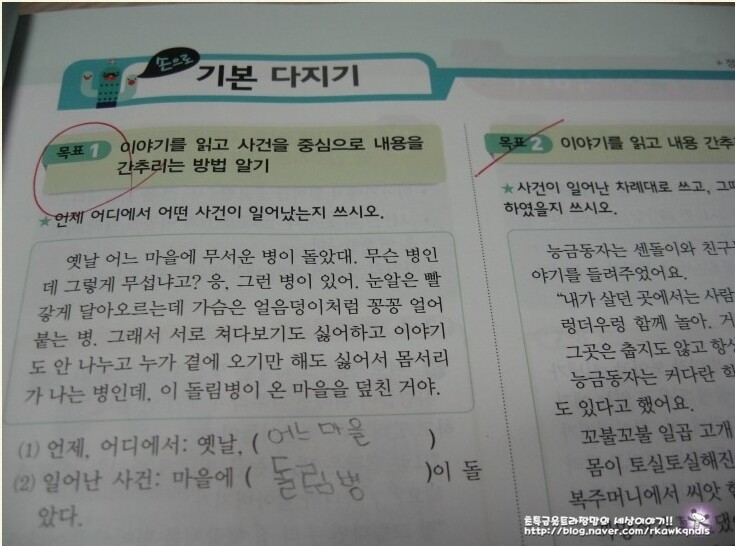 손으로
기본 다지기
목표 1 이야기를 읽고 사건을 중심으로 내용을
간추리는 방법 알기
★언제 어디에서 어떤 사건이 일어났는지 쓰시오.
옛날 어느 마을에 무서운 병이 돌았대. 무슨 병인
데 그렇게 무섭냐고? 응, 그런 병이 있어. 눈알은 빨
갛게 달아오르는데 가슴은 얼음덩이처럼 꽁꽁 얼어
붙는 병. 그래서 서로 쳐다보기도 싫어하고 이야기
도 안 나누고 누가 곁에 오기만 해도 싫어서 몸서리
가 나는 병인데, 이 돌림병이 온 마을을 덮친 거야.
(1) 언제, 어디에서: 옛날, ( 어느 마을 )
(2) 일어난 사건: 마을에 ( 돌림병 )이 돌
았다.
목표 2 이야기를 읽고 내용 간추
★사건이 일어난 차례대로 쓰고, 그
하였을지 쓰시오.
능금동자는 센돌이와 친구
야기를 들려주었어요.
“내가 살던 곳에서는 사람
렁더우렁 함께 놀아. 거
그곳은 춥지도 않고 항상
능금동자는 커다란
도 있다고 했어요.
꼬불꼬불 일곱 고개
몸이 토실토실해진
복주머니에서 씨앗
http://blog.naver.com/rkawkqndls